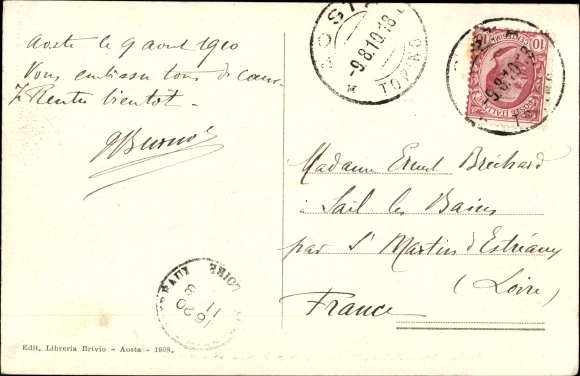 Aoste le 9 août 1910
Vous embrasse tous de cœur
Rentre bientôt -
AOSTA
-9.8.10.18
TORINO
10
POSTE ITALIANE
9.8.10.18
Madame Ernest Bréchard
à Sail les Bains
par St Martin d'Estréaux
(Loire)
France
LOIRE
16 20
11
8
Edit. Libreria Brivio - Aosta - 1908.